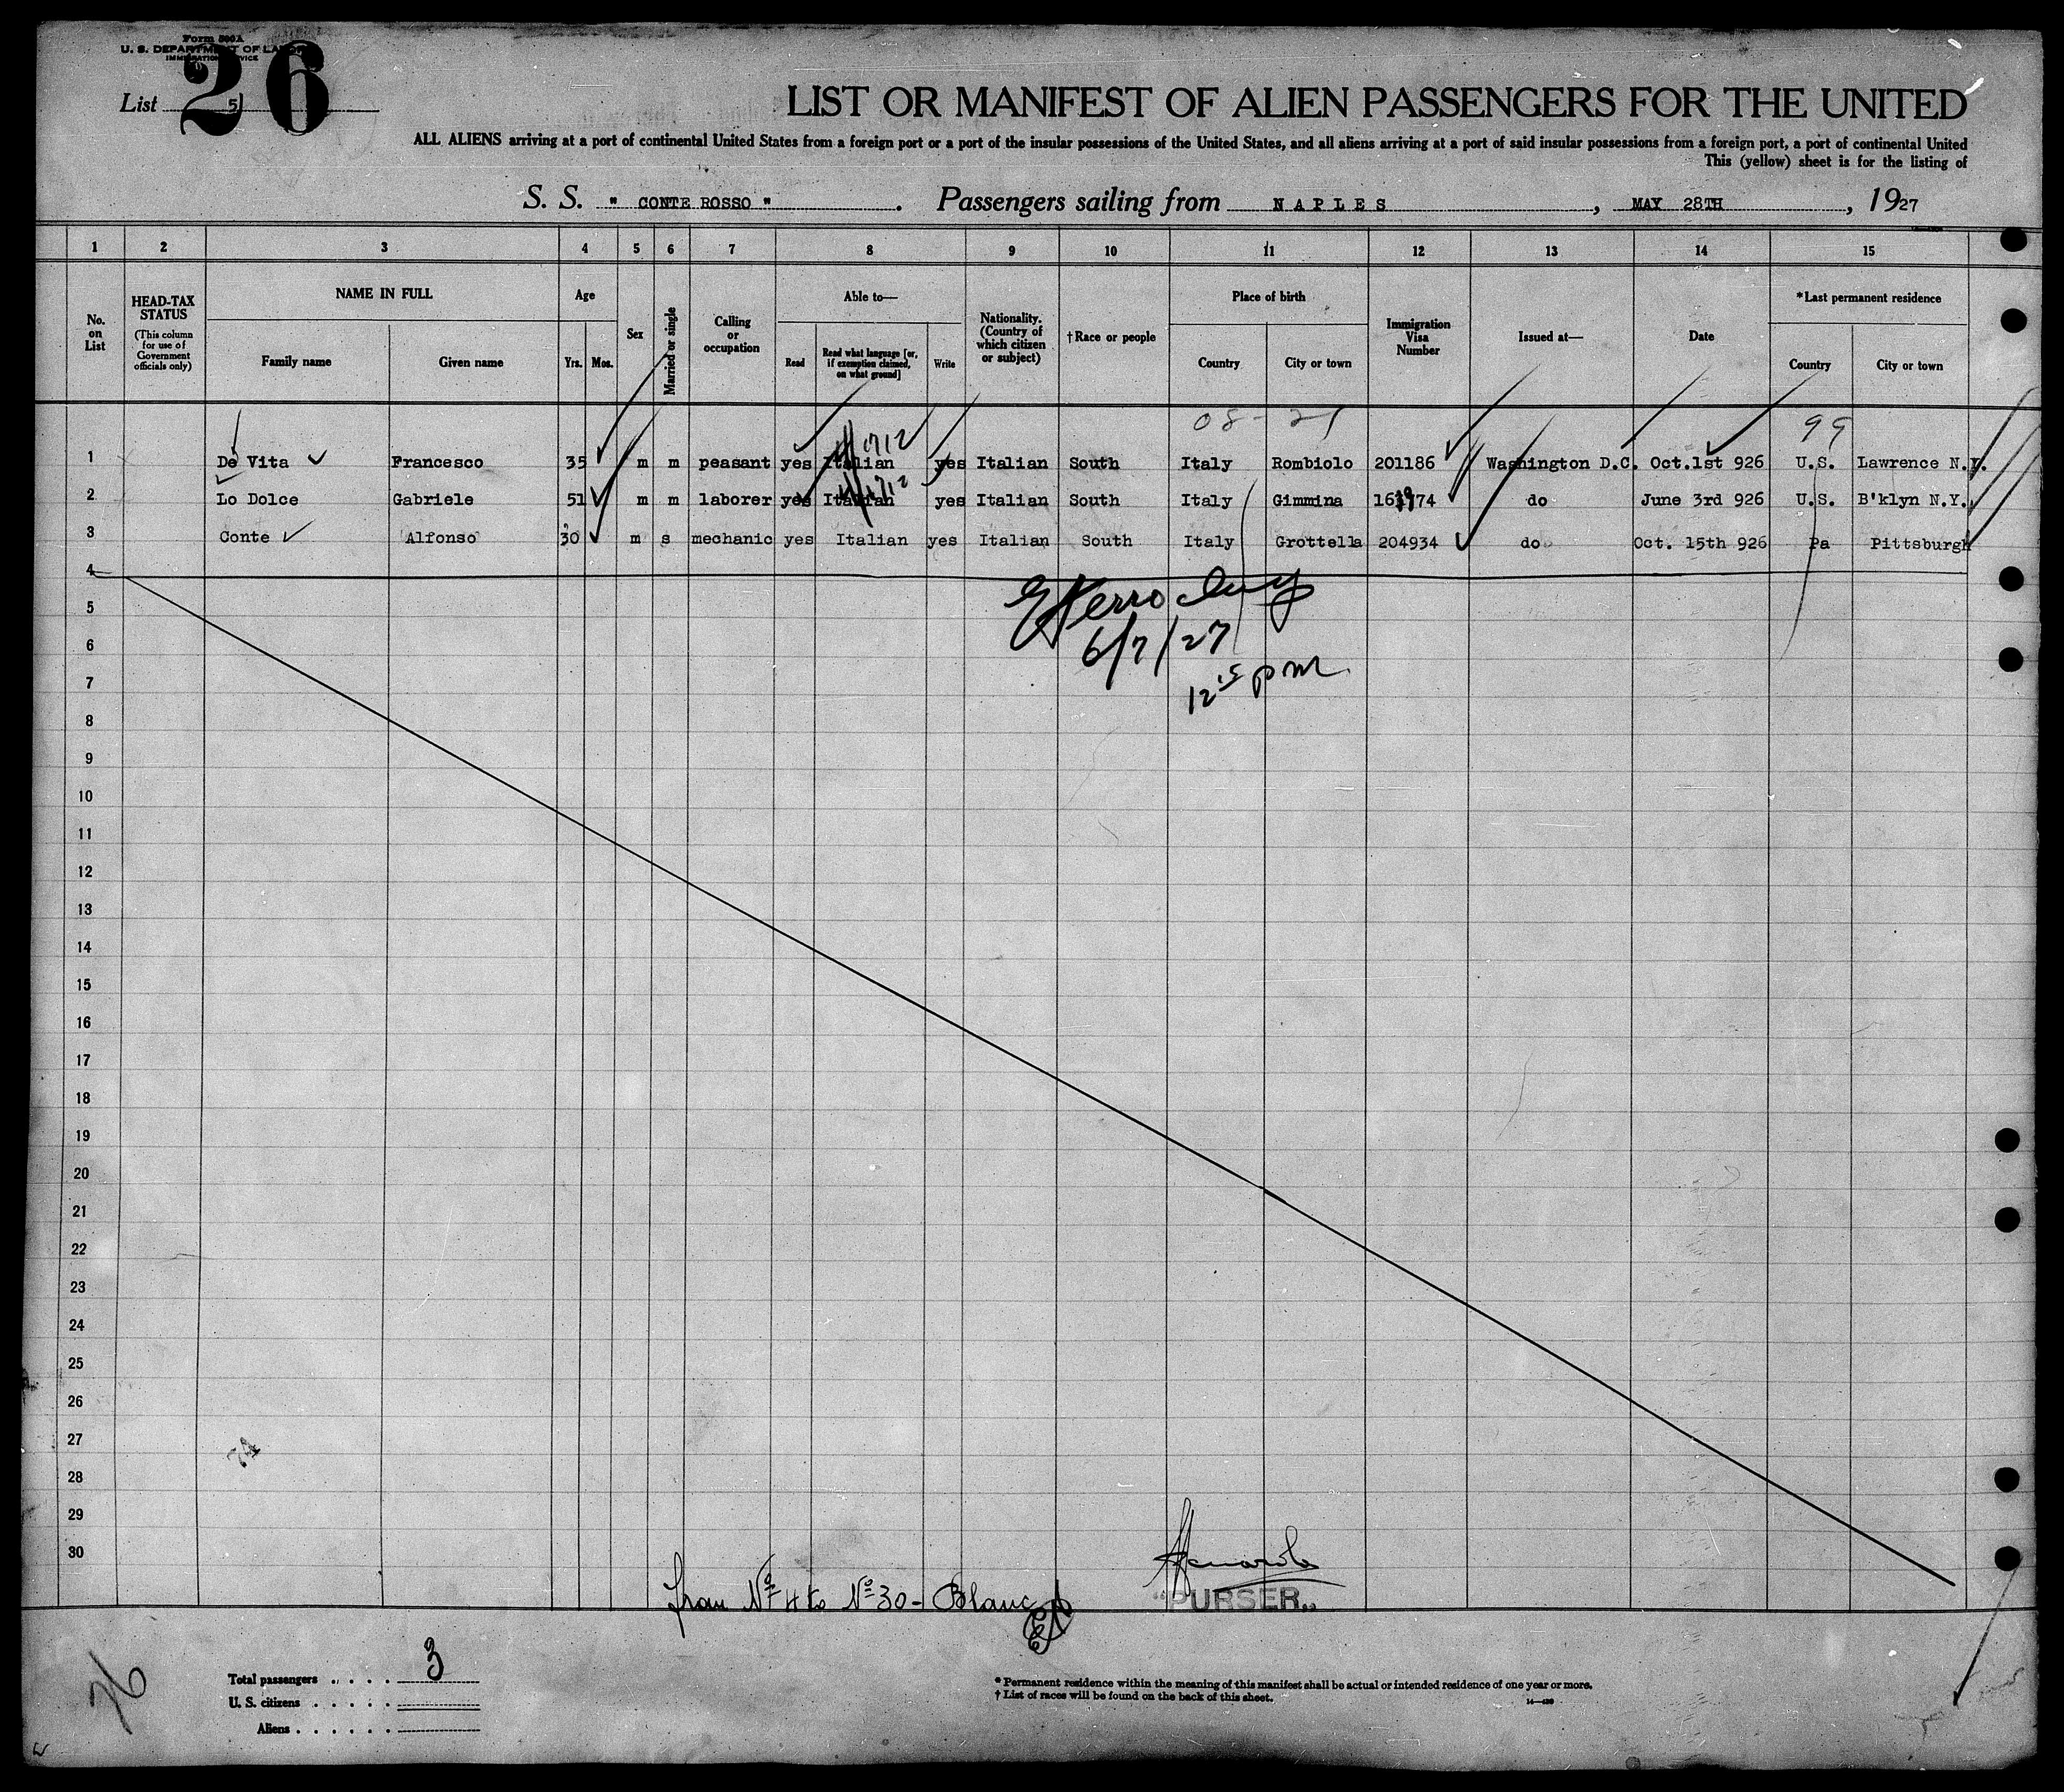 Form 500A
U. S. DEPARTMENT OF LABOR
IMMIGRATION SERVICE
26
List 5)
LIST OR MANIFEST OF ALIEN PASSENGERS FOR THE UNITED
ALL ALIENS arriving at a port of continental United States from a foreign port or a port of the insular possessions of the United States, and all aliens arriving at a port of said insular possessions from a foreign port, a port of continental United
This (yellow) sheet is for the listing of
S. S. " CONTE ROSSO ". Passengers sailing from NAPLES, MAY 28TH, 1927
1 2 3 4 5 6 7 8 9 10 11 12 13 14 15
No. on List
HEAD-TAX STATUS
(This column for use of Government officials only)
NAME IN FULL
Family name Given name
Age
Yrs. Mos.
Sex
Married or single
Calling or occupation
Able to—
Read
Read what language [or, if exemption claimed, on what ground]
Write
Nationality. (Country of which citizen or subject)
†Race or people
Place of birth
Country City or town
Immigration Visa Number
Issued at—
Date
*Last permanent residence
Country City or town
99
1 De Vita Francesco 35 m m peasant yes Italian yes Italian South Italy Rombiolo 201186 Washington D.C. Oct.1st 926 U.S. Lawrence N.Y.
2 Lo Dolce Gabriele 51 m m laborer yes Italian yes Italian South Italy Gimmina do June 3rd 926 U.S. B'klyn N.Y.
3 Conte Alfonso 30 m s mechanic yes Italian yes Italian South Italy Grottella 204934 do Oct. 15th 926 Pa Pittsburgh
4
5
6
6/7/27
12 15 pm
7
8
9
10
11
12
13
14
15
16
17
18
19
20
21
22
23
24
25
26
27
28
29
30
from Nº 4 to Nº 30 - Blanc
"PURSER"
Total passengers . . . . 3
U. S. citizens . . . . .
Aliens . . . . . .
* Permanent residence within the meaning of this manifest shall be actual or intended residence of one year or more.
† List of races will be found on the back of this sheet.